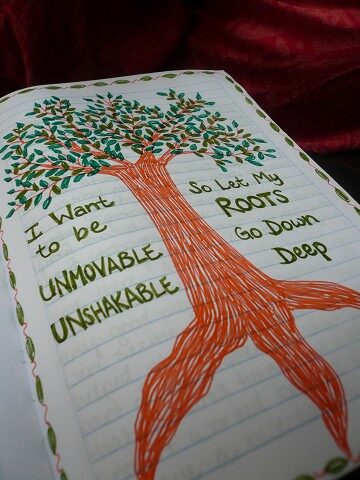 I Want
to be
UNMOVABLE
UNSHAKABLE
So Let My
ROOTS
Go Down
Deep